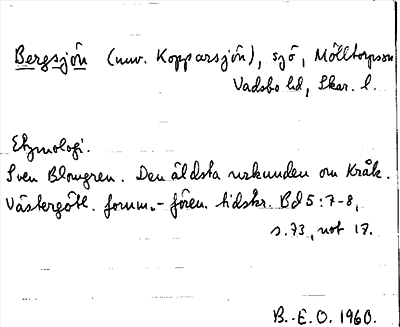 Bergsjön (nuv. Kopparsjön), sjö, Mölltorpssn
Vadsbo hd, Skar. l.
Etymologi.
Sven Blomgren. Den äldsta urkunden om Kråk.
Västergötl. fornm.-fören. tidskr. Bd 5:7-8,
s. 73, not 17.
B.-E.O. 1960.